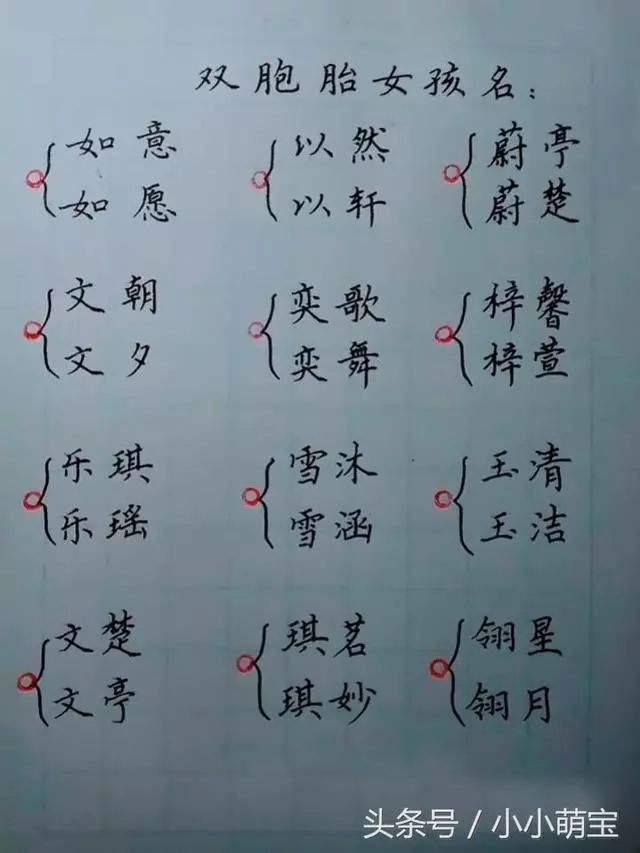 双胞胎女孩名：
如意 以然 蔚亭
如愿 以轩 蔚楚
文朝 奕歌 梓馨
文夕 奕舞 梓萱
乐琪 雪沐 玉清
乐瑶 雪涵 玉洁
文楚 琪茗 翎星
文亭 琪妙 翎月
头条号／小小萌宝